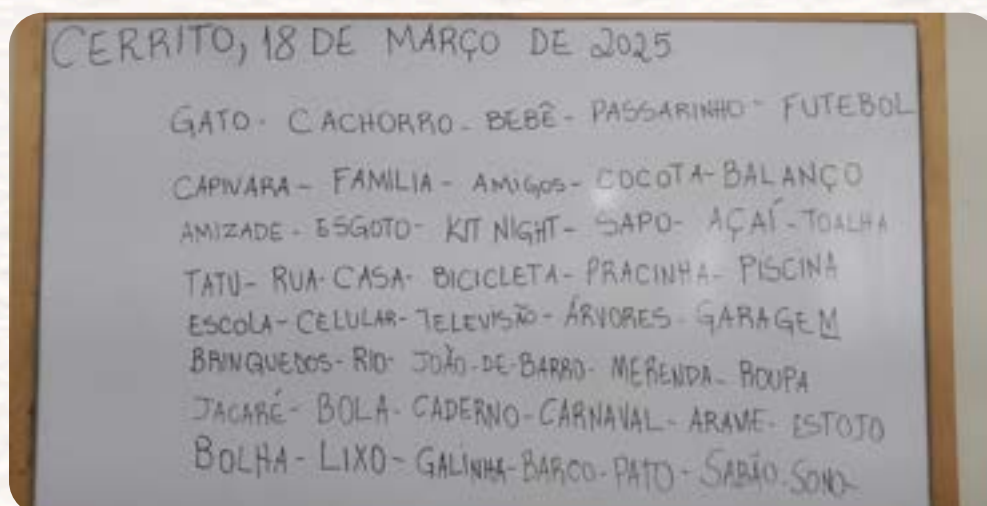 CERRITO, 18 DE MARÇO DE 2025
GATO - CACHORRO - BEBÊ - PASSARINHO - FUTEBOL
CAPIVARA - FAMILIA - AMIGOS - COCOTA - BALANÇO
AMIZADE - ESGOTO - KIT NIGHT - SAPO - AÇAÍ - TOALHA
TATU - RUA - CASA - BICICLETA - PRACINHA - PISCINA
ESCOLA - CELULAR - TELEVISÃO - ÁRVORES - GARAGEM
BRINQUEDOS - RIO - JOÃO-DE-BARRO - MERENDA - ROUPA
JACARÉ - BOLA - CADERNO - CARNAVAL - ARAME - ESTOJO
BOLHA - LIXO - GALINHA - BARCO - PATO - SABÃO - SONO